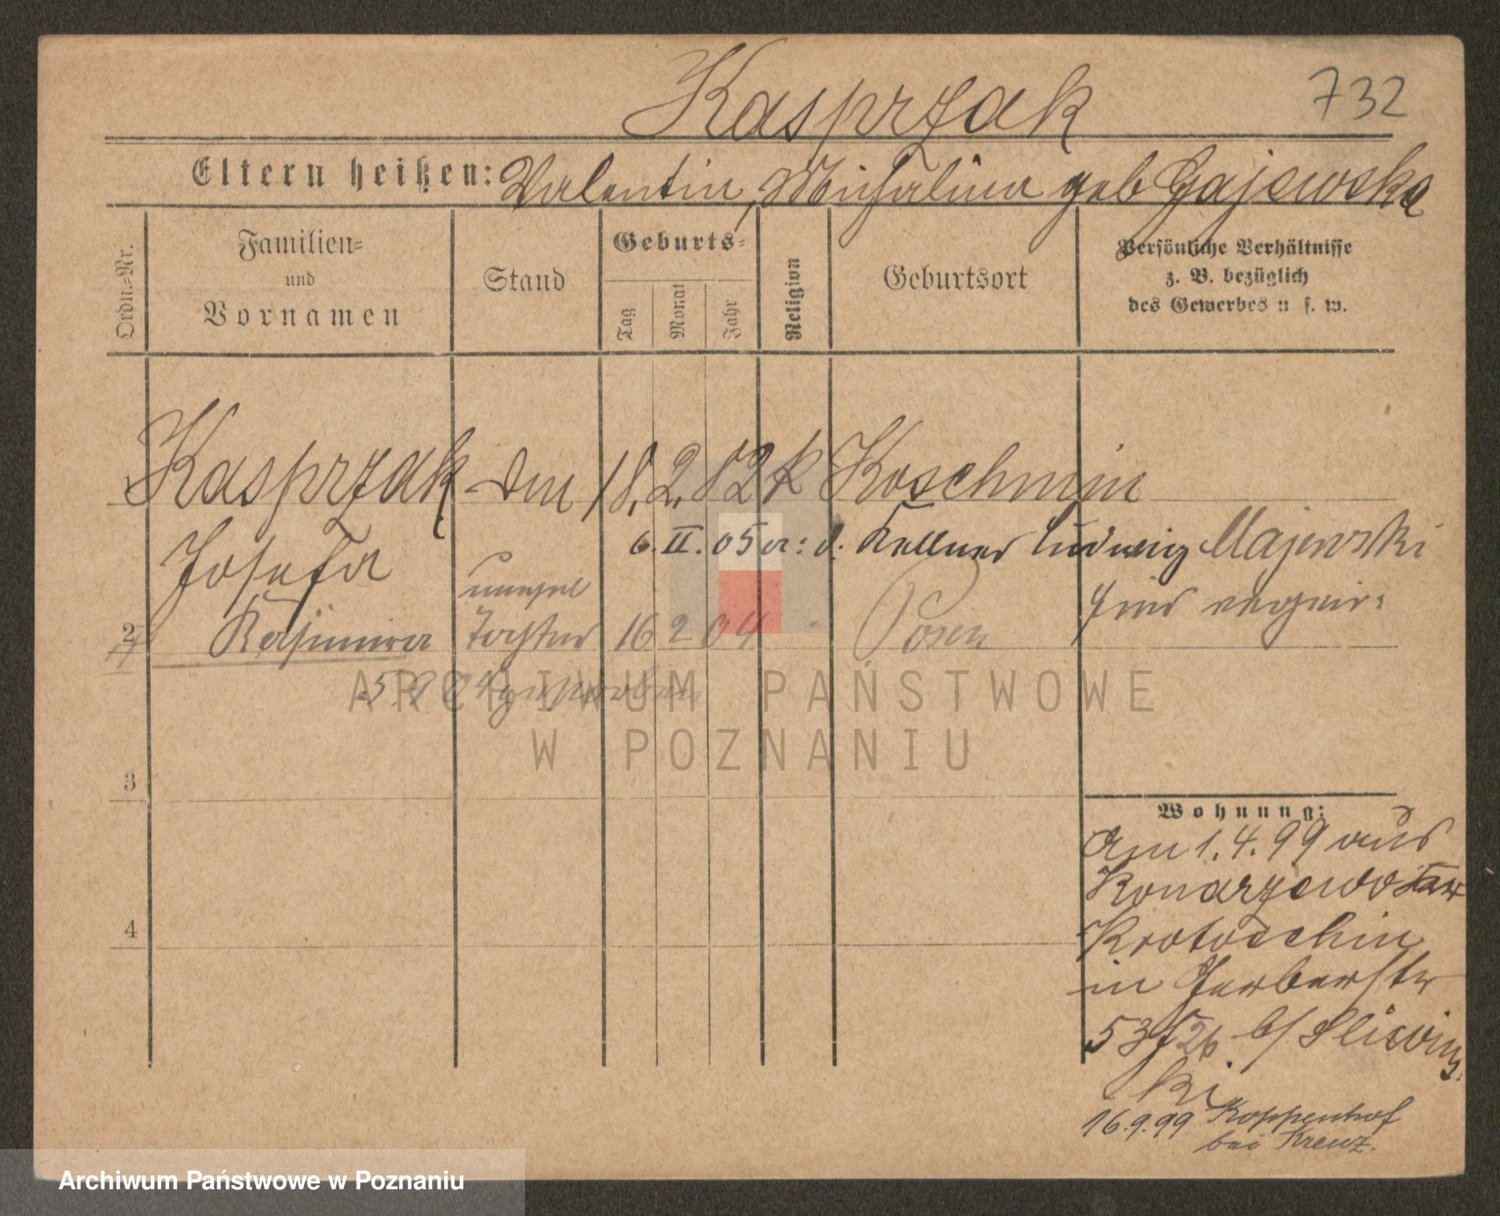 Kasprzak
732
Eltern heißen: Valentin, Michalina geb Gajewska
Ordn.-Nr.
Familien-
und
Vornamen
Stand
Geburts-
Tag
Monat
Jahr
Religion
Geburtsort
Persönliche Verhältnisse
z. B. bezüglich
des Gewerbes u. s. w.
1 Kasprzak 18. 2. 82 k Koschmin
Josefa
6. II. 05 d. Kellner Ludwig Majewski
unehel
2 Kasimira Tochter 16 2 04 Posen
5 9 04 gestorben
ARCHIWUM PAŃSTWOWE
W POZNANIU
3
4
Wohnung:
Am 1. 4. 99 aus
Konarzewo
Krotoschin
in Gerberstr
53 b/ Sliwins
ki.
16.9.99 Koppenhof
bei Kreuz.
Archiwum Państwowe w Poznaniu